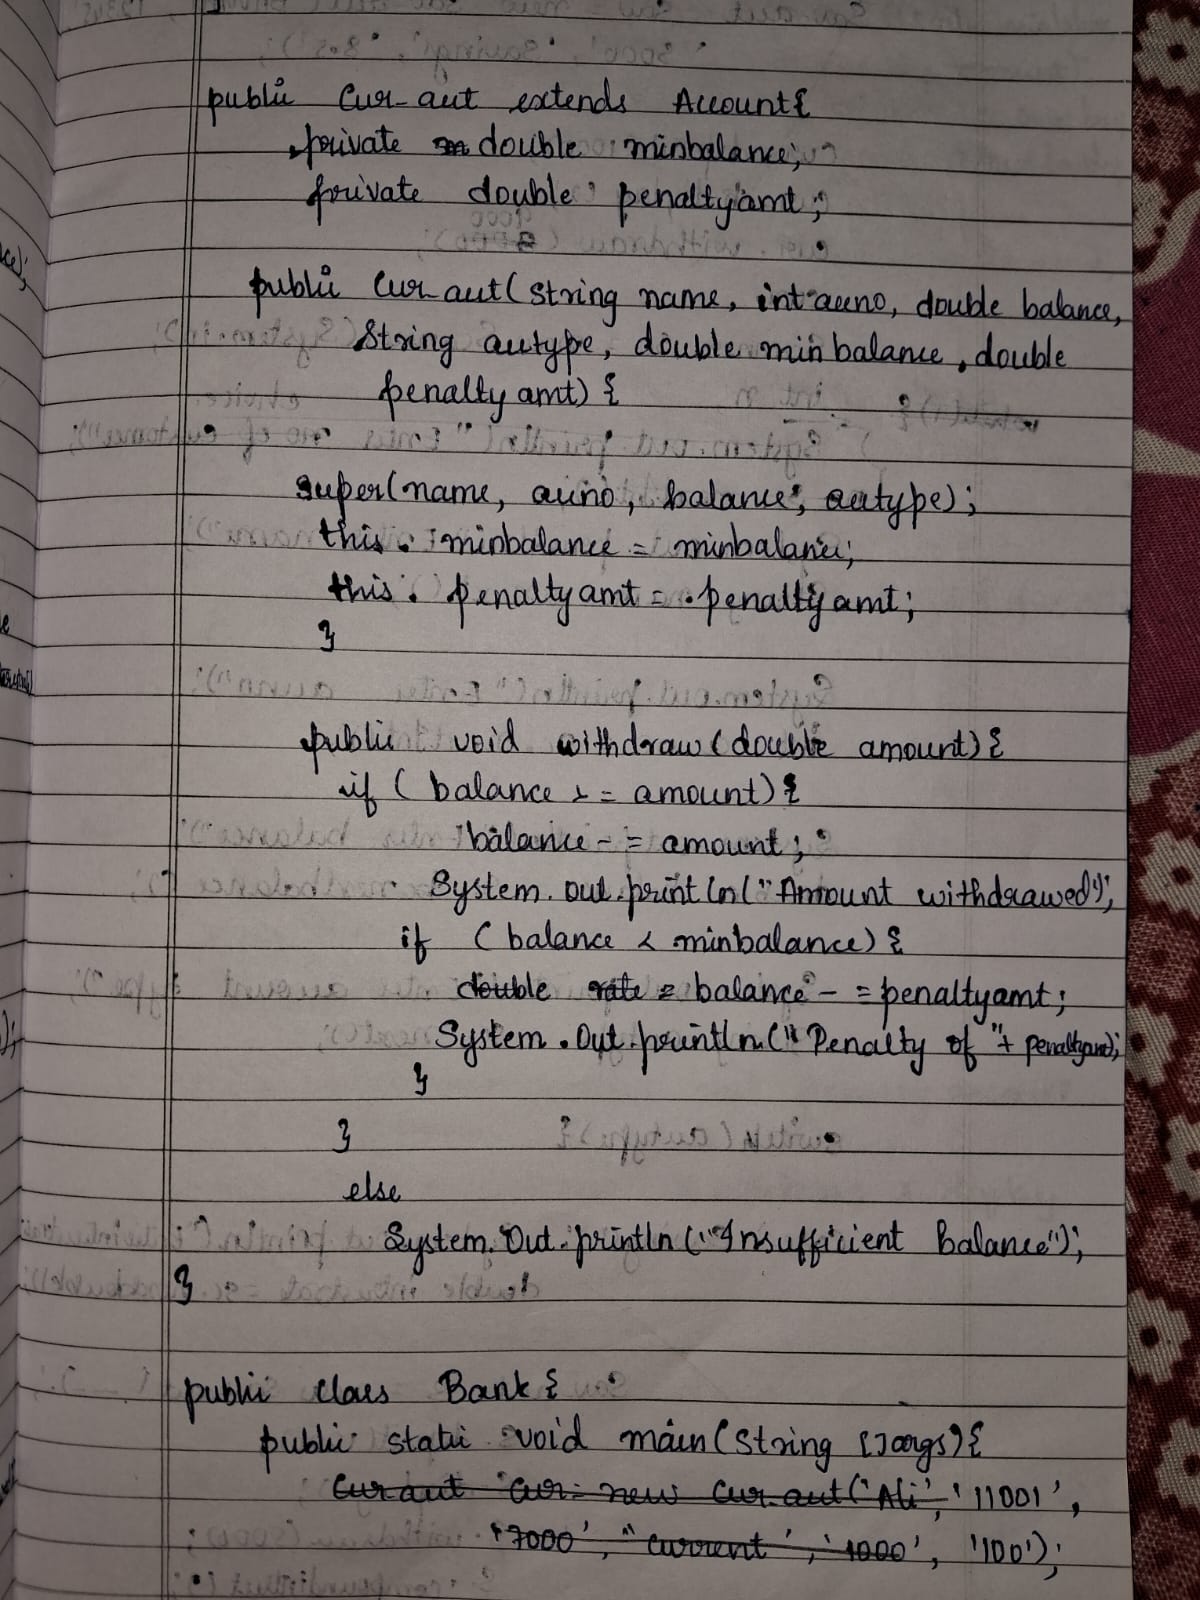 public Cur_acct extends Account{
private double minbalance;
private double penaltyamt;
public Cur_acct(String name, int accno, double balance,
String acctype, double minbalance, double
penaltyamt) {
super(name, accno, balance, acctype);
this. minbalance = minbalance;
this. penaltyamt = penaltyamt;
}
public void withdraw(double amount){
if ( balance > = amount) {
balance - = amount;
System. out. println("Amount withdrawed");
if ( balance < minbalance) {
double rate = balance - = penaltyamt;
System. Out. println("Penalty of "+ penaltyamt);
}
}
else
System. Out. println("Insufficient Balance");
}
public class Bank {
public static void main(String []args){
Cur_acct cur = new Cur_acct('Ali', '11001',
'7000', "current', '1000', '100');